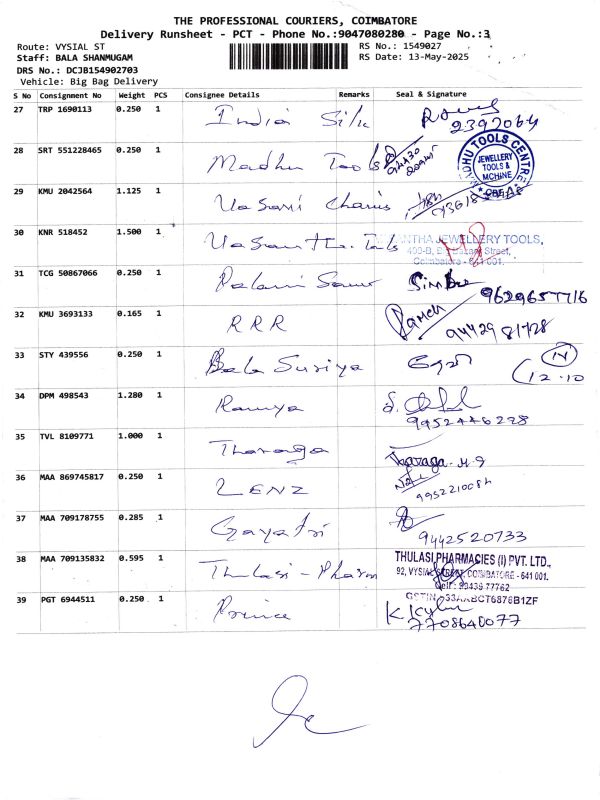 THE PROFESSIONAL COURIERS, COIMBATORE
Delivery Runsheet - PCT - Phone No.:9047080280 - Page No.:3
Route: VYSIAL ST
RS No.: 1549027
Staff: BALA SHANMUGAM
RS Date: 13-May-2025
DRS No.: DCJB154902703
Vehicle: Big Bag Delivery
S No Consignment No Weight PCS Consignee Details Remarks Seal & Signature
27 TRP 1690113 0.250 1 India Silk
2392064
28 SRT 551228465 0.250 1 Madhu Tools
MADHU TOOLS CENTRE
JEWELLERY TOOLS & MCHINE
CBE
29 KMU 2042564 1.125 1 Vasavi Chains
30 KNR 518452 1.500 1 Vasantha Tools
VASANTHA JEWELLERY TOOLS,
Coimbatore - 641 001.
31 TCG 50867066 0.250 1 Palani
9629657716
32 KMU 3693133 0.165 1 RRR Ramesh
9442981728
33 STY 439556 0.250 1 Bala Suriya
12.10
34 DPM 498543 1.280 1 Ramya
9952446228
35 TVL 8109771 1.000 1 Tharanga
36 MAA 869745817 0.250 1 LENZ
9952210084
37 MAA 709178755 0.285 1 Gayatri
9442520733
38 MAA 709135832 0.595 1 Thulasi - Pharm
THULASI PHARMACIES (I) PVT. LTD.,
92, VYSIAL STREET, COIMBATORE - 641 001.
Cell : 99439 77762
GSTIN :33AABCT6878B1ZF
39 PGT 6944511 0.250 1 Prince
7708640077